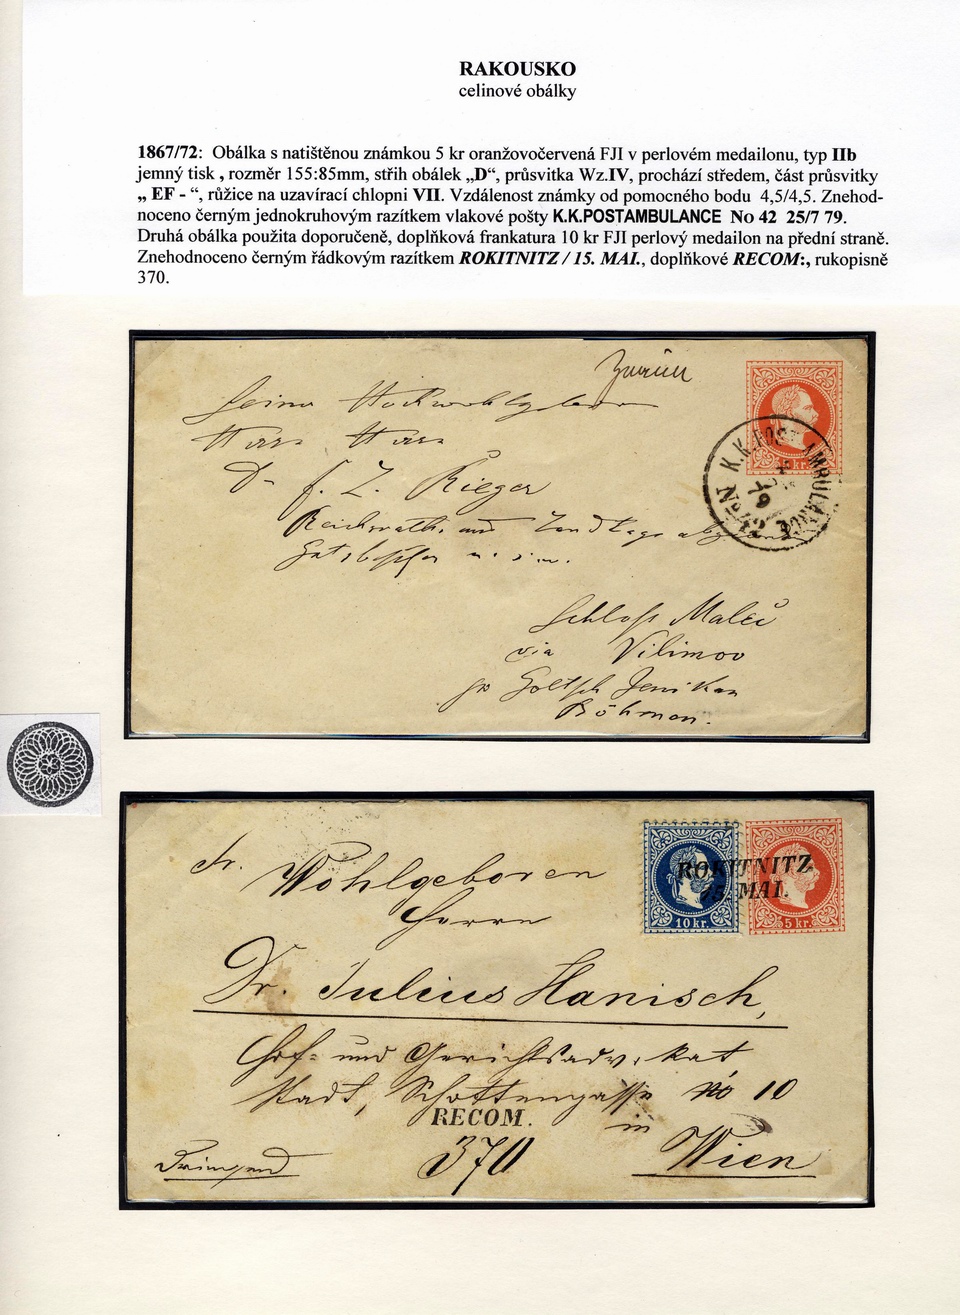 RAKOUSKO
celinové obálky
1867/72: Obálka s natištěnou známkou 5 kr oranžovočervená FJI v perlovém medailonu, typ IIb
jemný tisk , rozměr 155:85mm, střih obálek „D“, průsvitka Wz.IV, prochází středem, část průsvitky
„ EF - “, růžice na uzavírací chlopni VII. Vzdálenost známky od pomocného bodu 4,5/4,5. Znehod-
noceno černým jednokruhovým razítkem vlakové pošty K.K.POSTAMBULANCE No 42 25/7 79.
Druhá obálka použita doporučeně, doplňková frankatura 10 kr FJI perlový medailon na přední straně.
Znehodnoceno černým řádkovým razítkem ROKITNITZ / 15. MAI., doplňkové RECOM:, rukopisně
370.
Seiner Hochwohlgeboren
Herrn Herrn
Dr F. L. Rieger
Reichsraths und Landtags
Gutsbesitzer
5 kr.
K.K. POST AMBULANCE
No 42
79
Schloss Maleč
via Vilimov
pr Goltsch Jenikau
Böhmen.
10 kr.
5 kr.
ROKITNITZ
15. MAI.
Sr. Wohlgeboren
Herrn
Dr. Julius Hanisch,
Hof- und Gerichtsadvokat
Stadt, Schottengasse No 10
RECOM.
in
370
Wien
Dringend